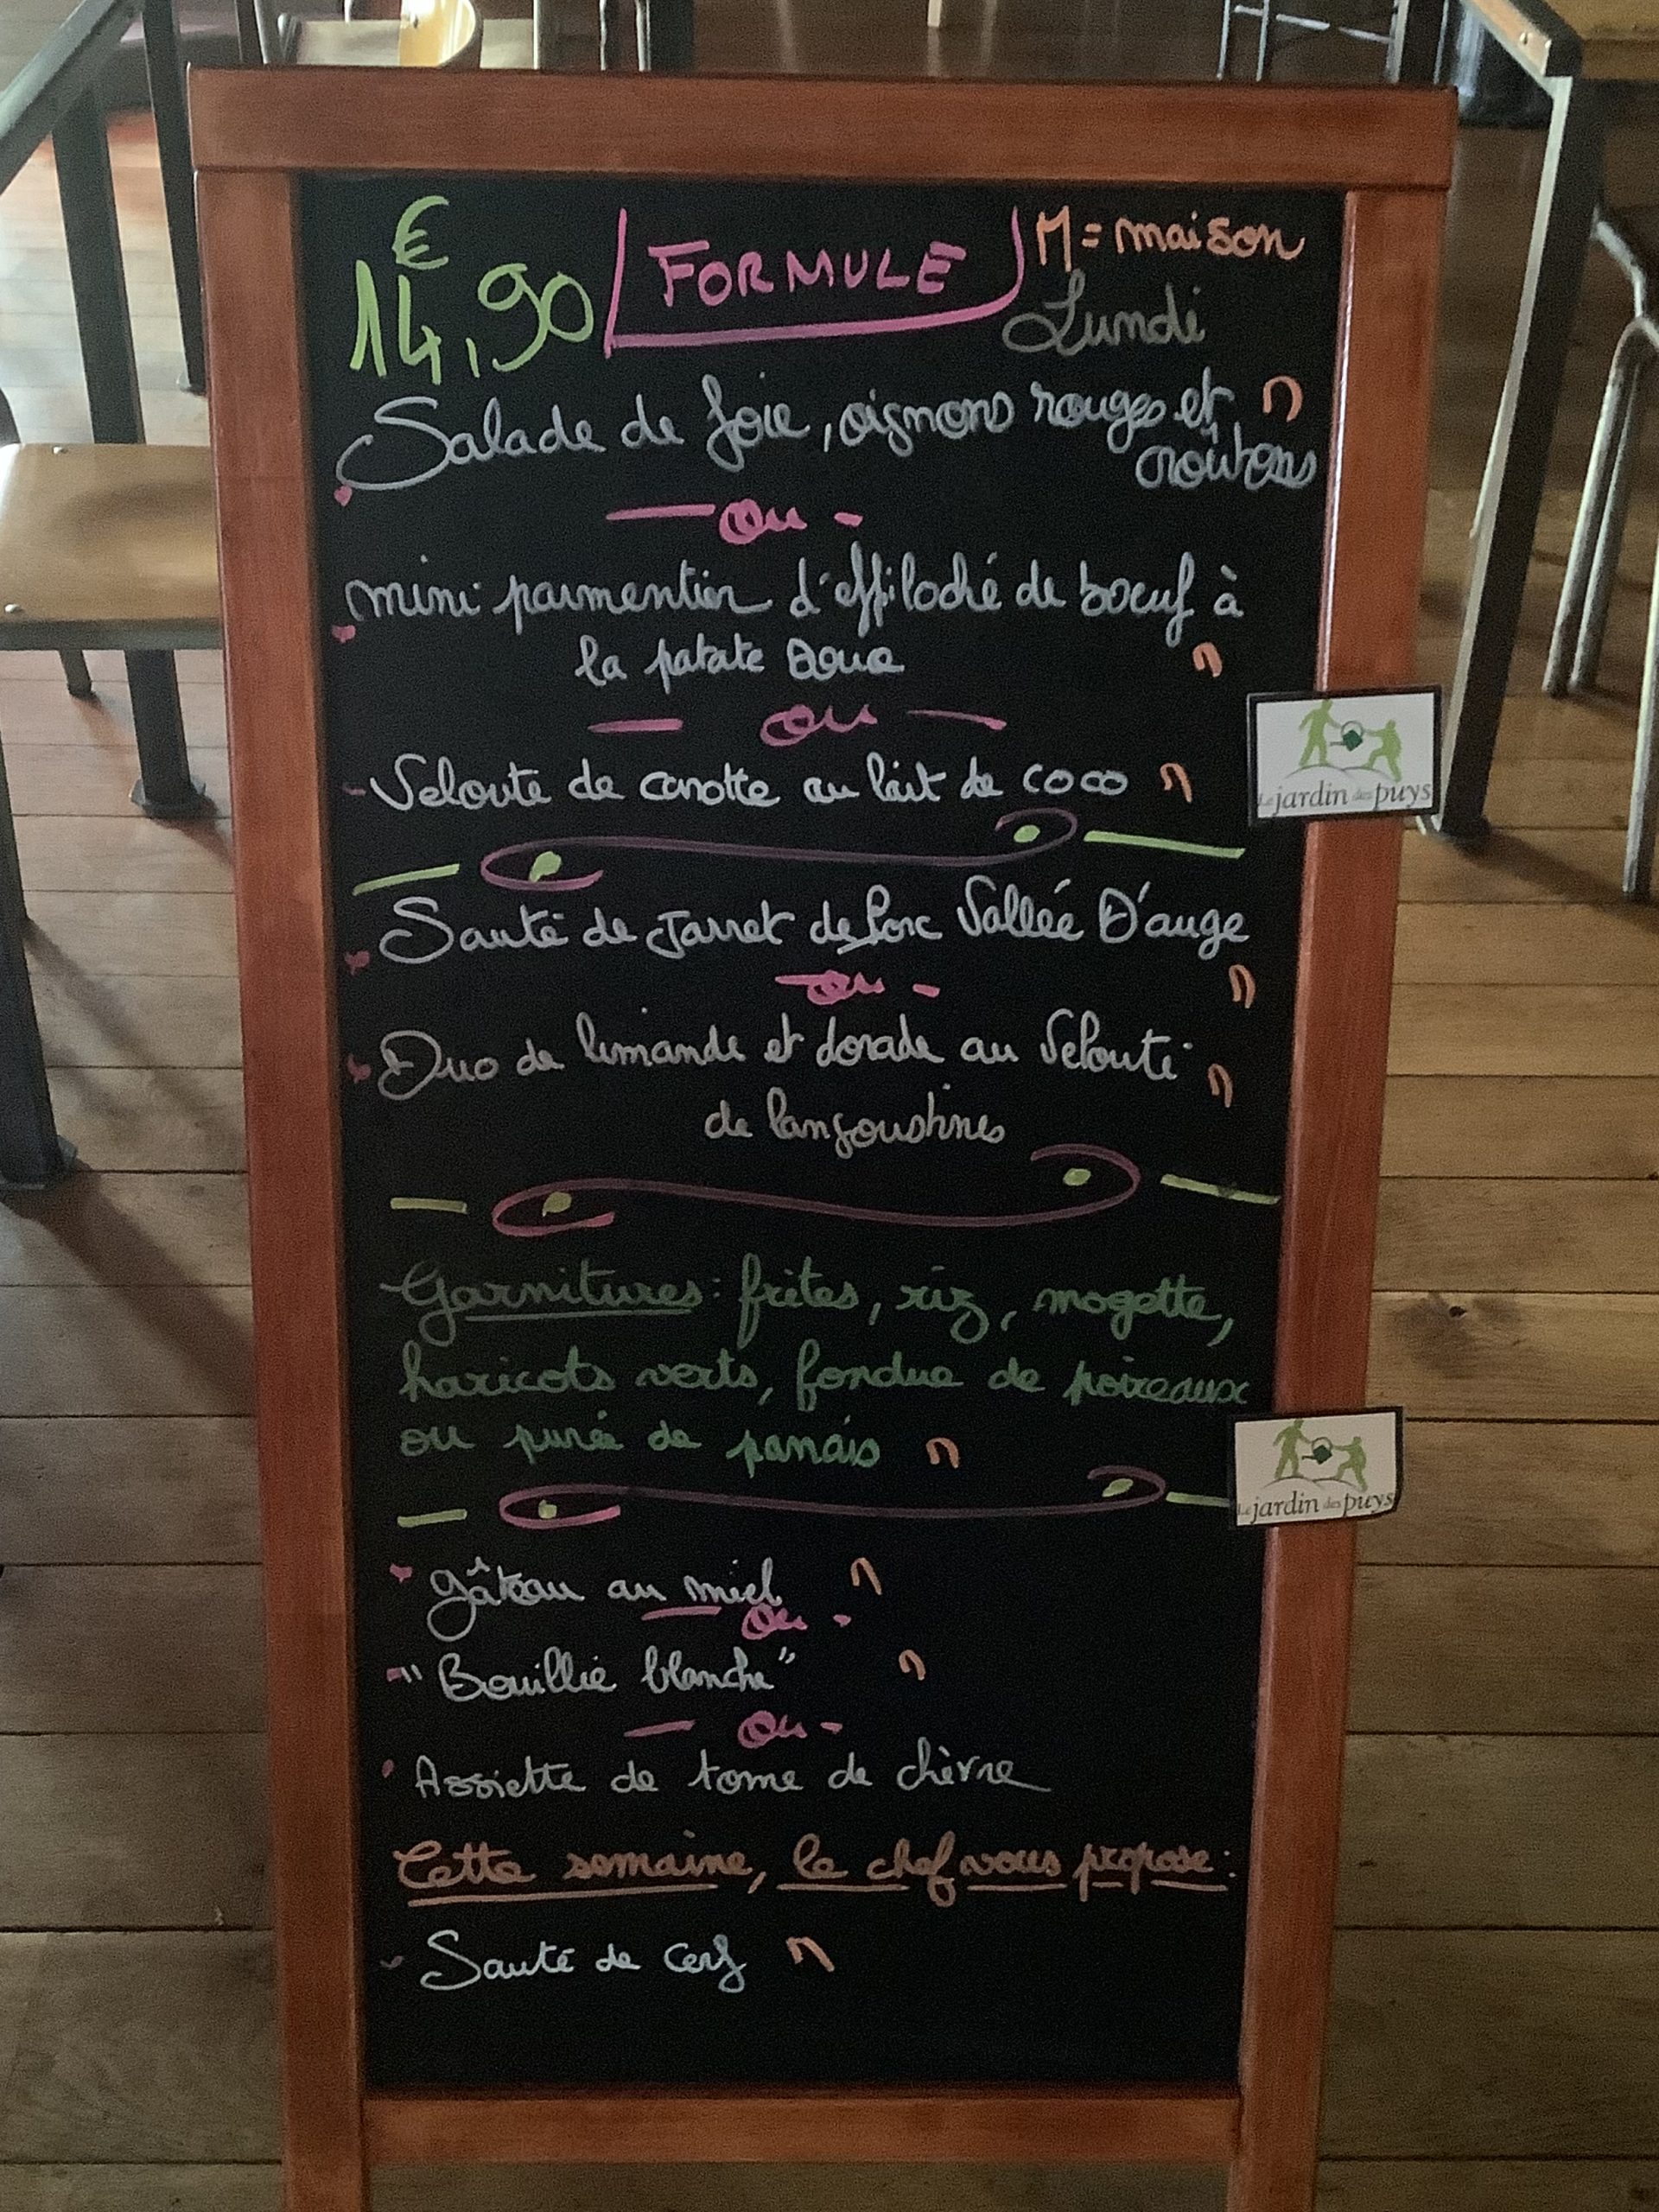 14,90 € FORMULE M = maison
Lundi
Salade de foie, oignons rouges et M
croûtons
ou
mini parmentier d'effiloché de boeuf à
la patate douce M
ou
Velouté de carotte au lait de coco M
Le jardin des puys
Sauté de Jarret de Porc Vallée D'auge
ou M
Duo de limande et dorade au Velouté M
de langoustines
Garnitures : frites, riz, mogette,
haricots verts, fondue de poireaux
ou purée de panais M
Le jardin des puys
gâteau au miel M
ou
"Bouillie blanche" M
ou
Assiette de tome de chèvre
Cette semaine, le chef vous propose :
Sauté de cerf M